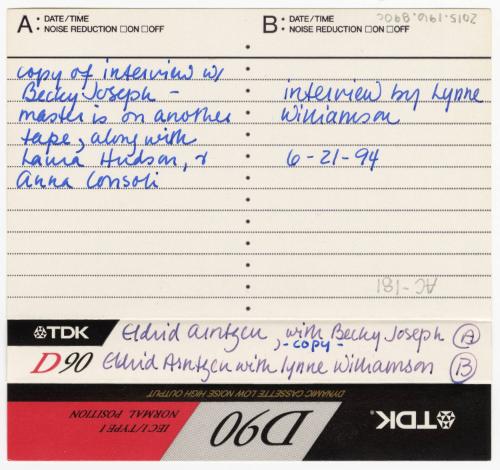 A • DATE/TIME
• NOISE REDUCTION □ON □OFF
B • DATE/TIME
• NOISE REDUCTION □ON □OFF
2015.196.840c
copy of interview w/
Becky Joseph -
master is on another
tape, along with
Laura Hudson, &
Anna Consoli
interview by Lynne
Williamson
6-21-94
AC-181
TDK
Eldrid Arntzen, with Becky Joseph (A)
-copy-
D90
Eldrid Arntzen with Lynne Williamson (B)
DYNAMIC CASSETTE LOW NOISE HIGH OUTPUT
TDK
D90
IEC I/TYPE I
NORMAL POSITION